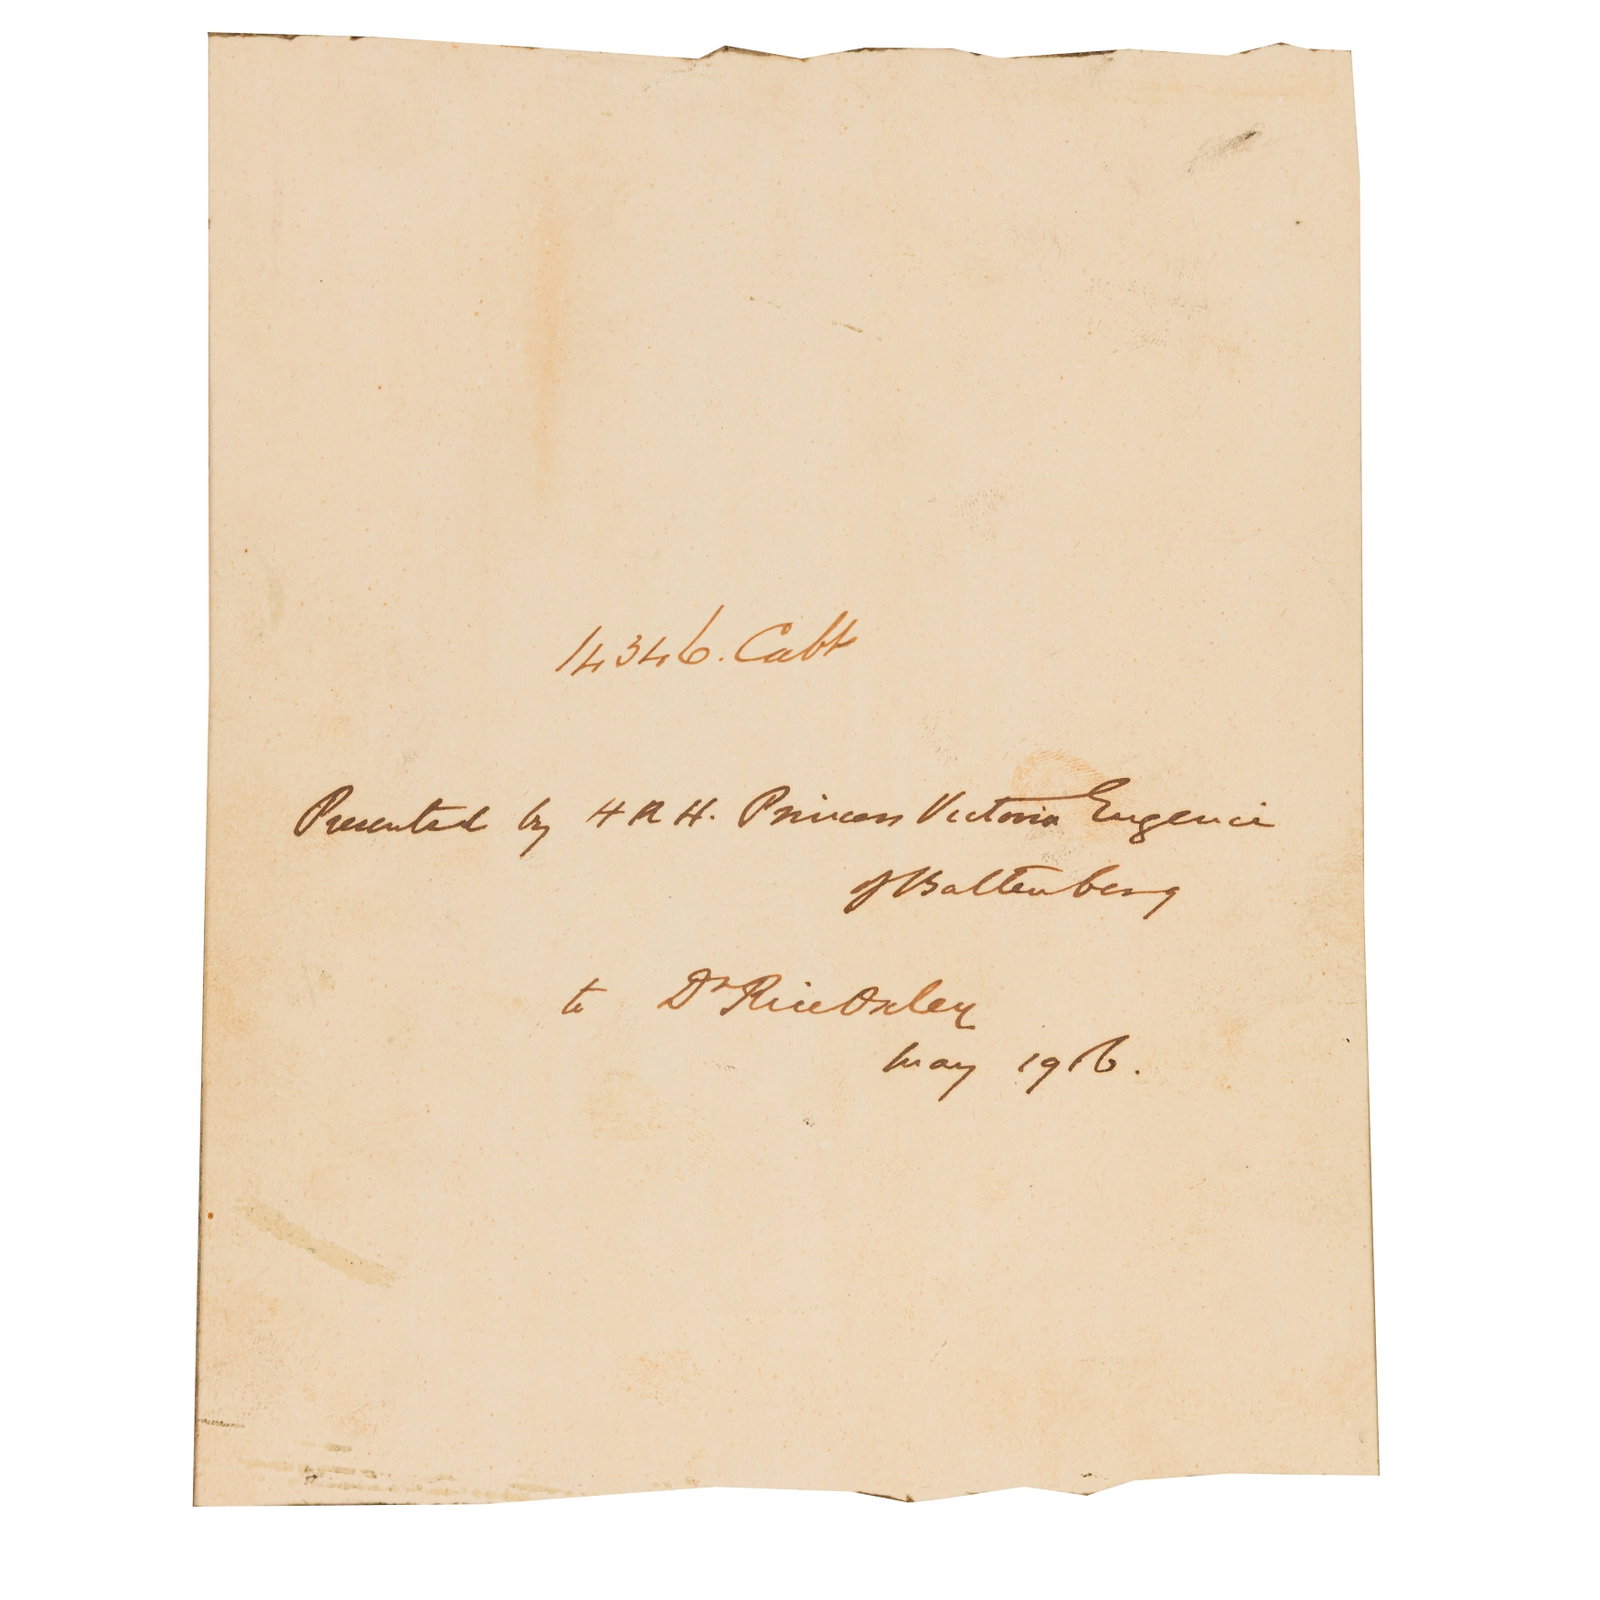 14346. Cabt
Presented by H R H. Princess Victoria Eugenie
of Battenberg
to Dr Rice Oxley
May 1916.